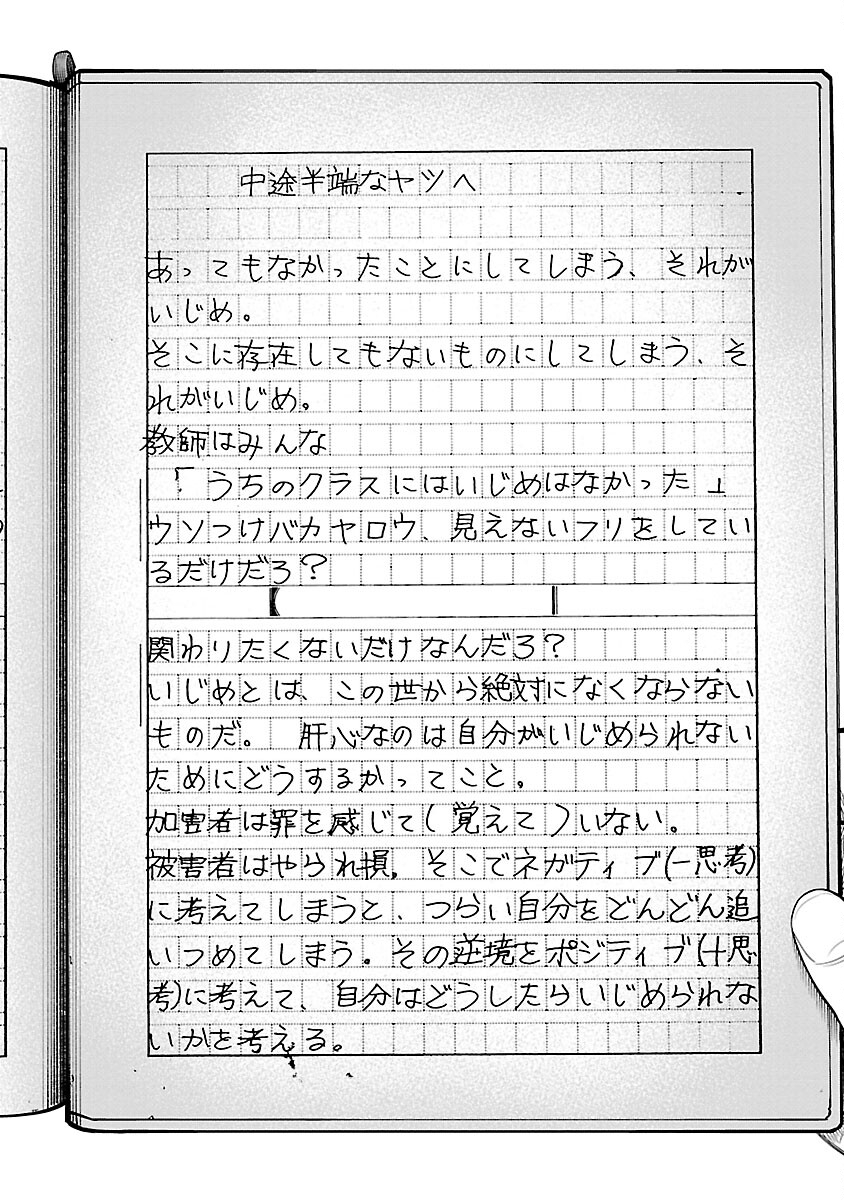 中途半端なヤツへ
あってもなかったことにしてしまう、それが
いじめ。
そこに存在してもないものにしてしまう、そ
れがいじめ。
教師はみんな
「うちのクラスにはいじめはなかった」
ウソつけバカヤロウ、見えないフリをしてい
るだけだろ?
関わりたくないだけなんだろ?
いじめとは、この世から絶対になくならない
ものだ。 肝心なのは自分がいじめられない
ためにどうするかってこと。
加害者は罪を感じて(覚えて)いない。
被害者はやられ損。そこでネガティブ(−思考)
に考えてしまうと、つらい自分をどんどん追
いつめてしまう。その逆境をポジティブ(+思
考)に考えて、自分はどうしたらいじめられな
いかを考える。